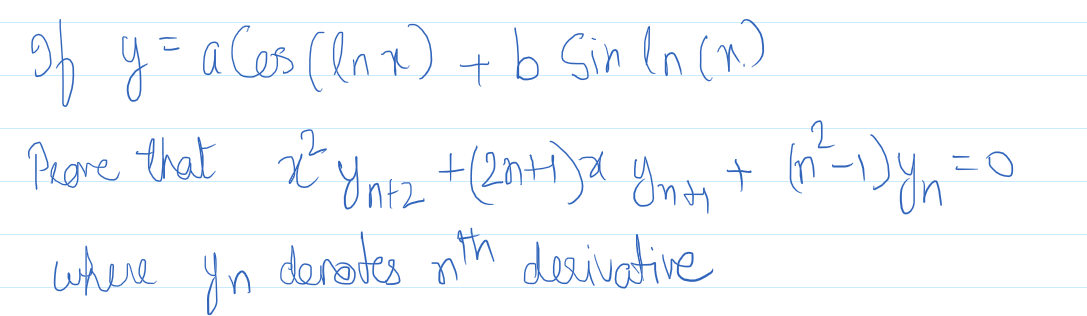 If y = a Cos(ln x) + b Sin ln(x)
Prove that x² yₙ₊₂ + (2n+1)x yₙ₊₁ + (n²-1)yₙ = 0
where yₙ denotes nᵗʰ derivative